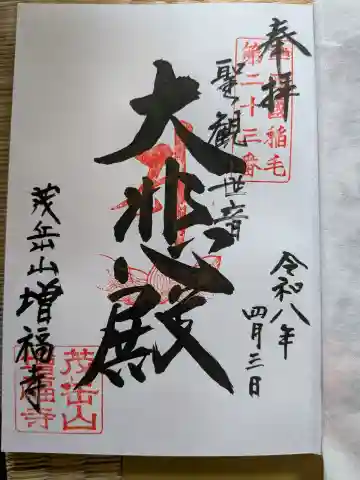 奉拝
準西國稲毛
第二十三番
聖観世音
大悲殿
令和八年
四月三日
茂岳山増福寺
茂岳山
増福寺